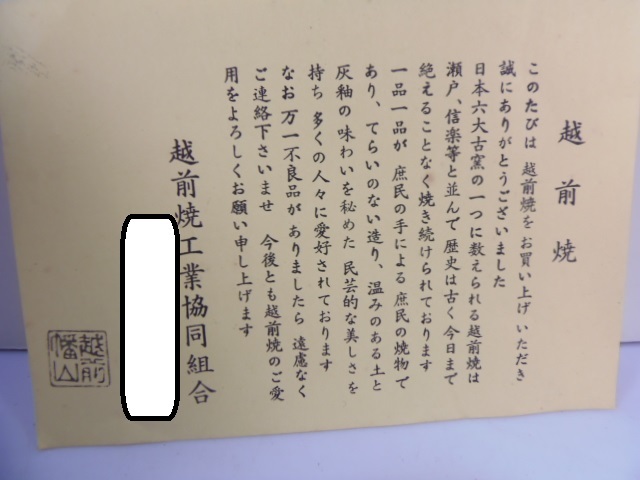 越前焼
このたびは 越前焼を お買い上げ いただき
誠にありがとうございました
日本六大古窯の一つに数えられる越前焼は
瀬戸、信楽等と並んで 歴史は古く 今日まで
絶えることなく焼き続けられております
一品一品が 庶民の手による 庶民の焼物で
あり、てらいのない造り、温みのある土と
灰釉の 味わいを秘めた 民芸的な美しさを
持ち 多くの人々に愛好されております
なお 万一不良品が ありましたら 遠慮なく
ご連絡下さいませ 今後とも越前焼のご愛
用をよろしくお願い申し上げます
越前焼工業協同組合
越前
幡山